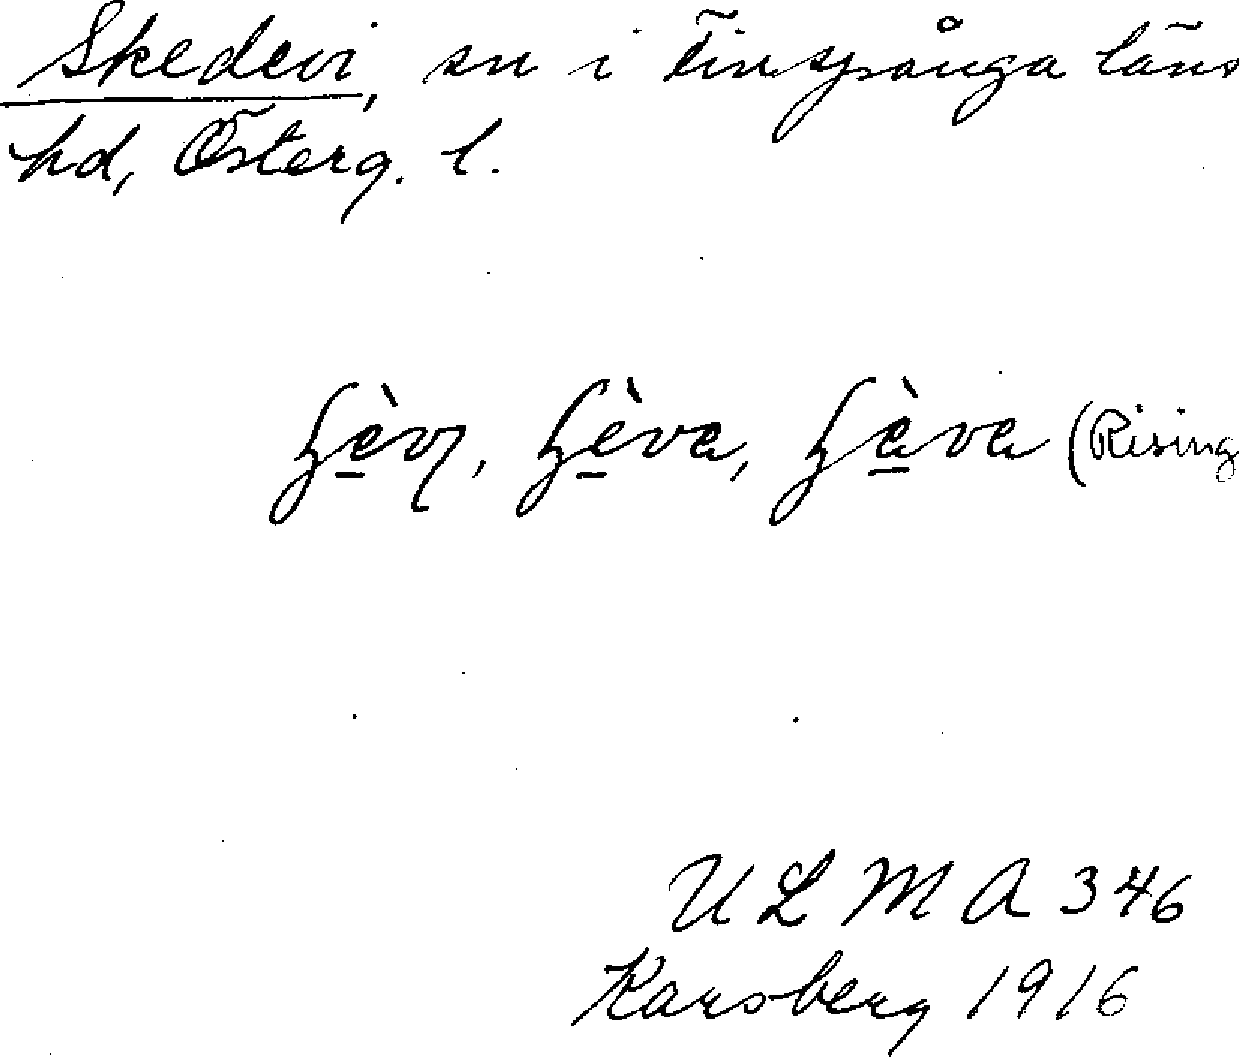 Skedevi, sn i Finspånga läns
hd, Österg. l.
(Rising
ULMA 346
Karsberg 1916